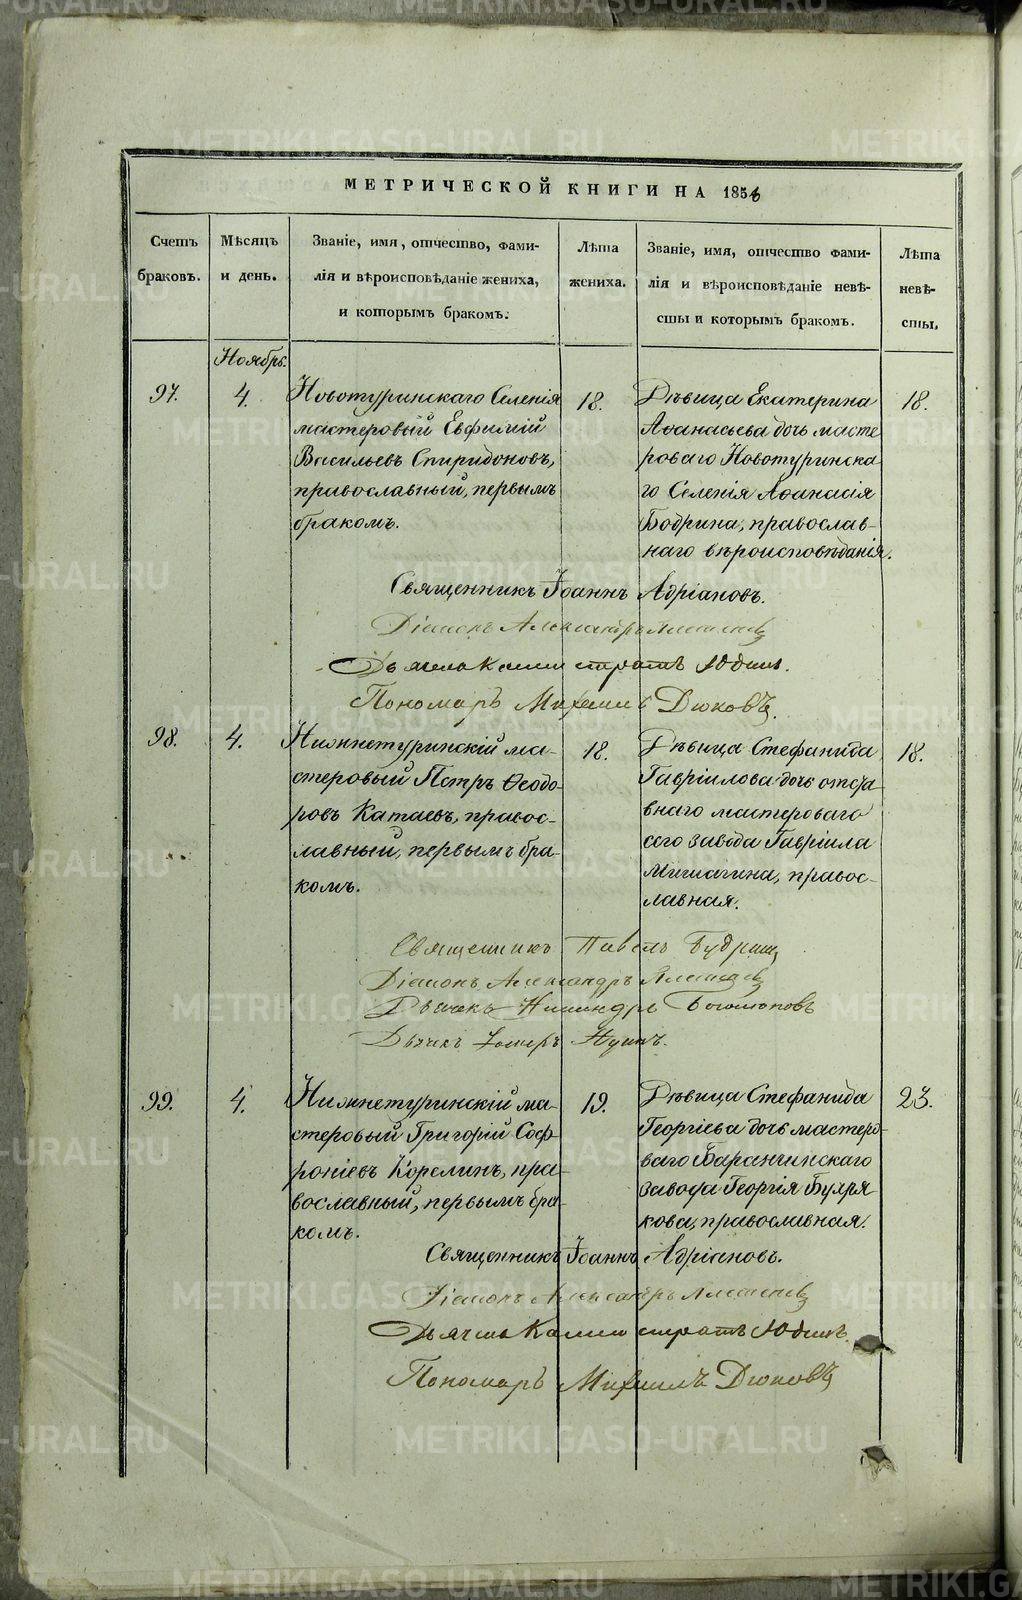 МЕТРИЧЕСКОЙ КНИГИ НА 1856
Счетъ браковъ.
Мѣсяцъ и день.
Званіе, имя, отчество, фами-
лія и вѣроисповѣданіе жениха,
и которымъ бракомъ.
Лѣта жениха.
Званіе, имя, отчество фами-
лія и вѣроисповѣданіе невѣ-
сты и которымъ бракомъ.
Лѣта невѣ-
сты.
Ноябрь.
97.
4.
Новотуринскаго Селенія
мастеровый Евфимій
Васильевъ Спиридоновъ,
православный, первымъ
бракомъ.
18.
Дѣвица Екатерина
Аѳанасьева дочь масте
роваго Новотуринска
го Селенія Аѳанасія
Бодрина, православ-
наго вѣроисповѣданія.
18.
Священникъ Іоаннъ Адріановъ.
Діаконъ Александръ
Дьячекъ Калистратъ Юдинъ.
Пономарь Михаилъ Дюковъ.
98.
4.
Нижнетуринскій ма-
стеровый Петръ Ѳеодо-
ровъ Катаевъ, правос-
лавный, первымъ бра-
комъ.
18.
Дѣвица Стефанида
Гавріилова дочь отста
внаго мастероваго
сего завода Гавріила
Мишагина, правос-
лавная.
18.
Священникъ Павелъ Будринъ
Діаконъ Александръ
Дьячекъ Никандръ Богомоловъ
Дьячекъ
99.
4.
Нижнетуринскій ма-
стеровый Григорій Соф-
роніевъ Корелинъ, пра-
вославный, первымъ бра-
комъ.
19.
Дѣвица Стефанида
Георгіева дочь мастеро-
ваго Баранчинскаго
завода Георгія Бухря
кова, православная.
23.
Священникъ Іоаннъ Адріановъ.
Діаконъ Александръ
Дьячекъ Калистратъ Юдинъ.
Пономарь Михаилъ Дюковъ
METRIKI.GASO-URAL.RU